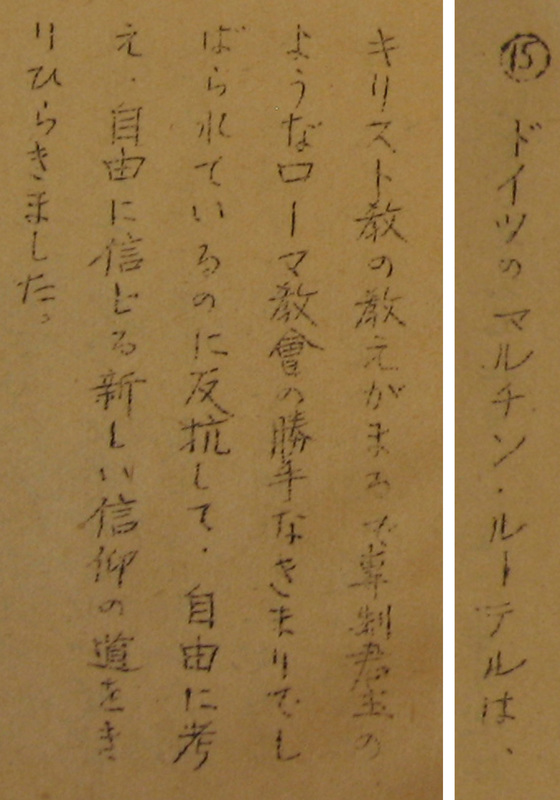 ⑮ ドイツのマルチン・ルーテルは、
キリスト教の教えがまるで専制君主の
ようなローマ教會の勝手なきまりでし
ばられているのに反抗して、自由に考
え、自由に信じる新しい信仰の道をき
りひらきました。